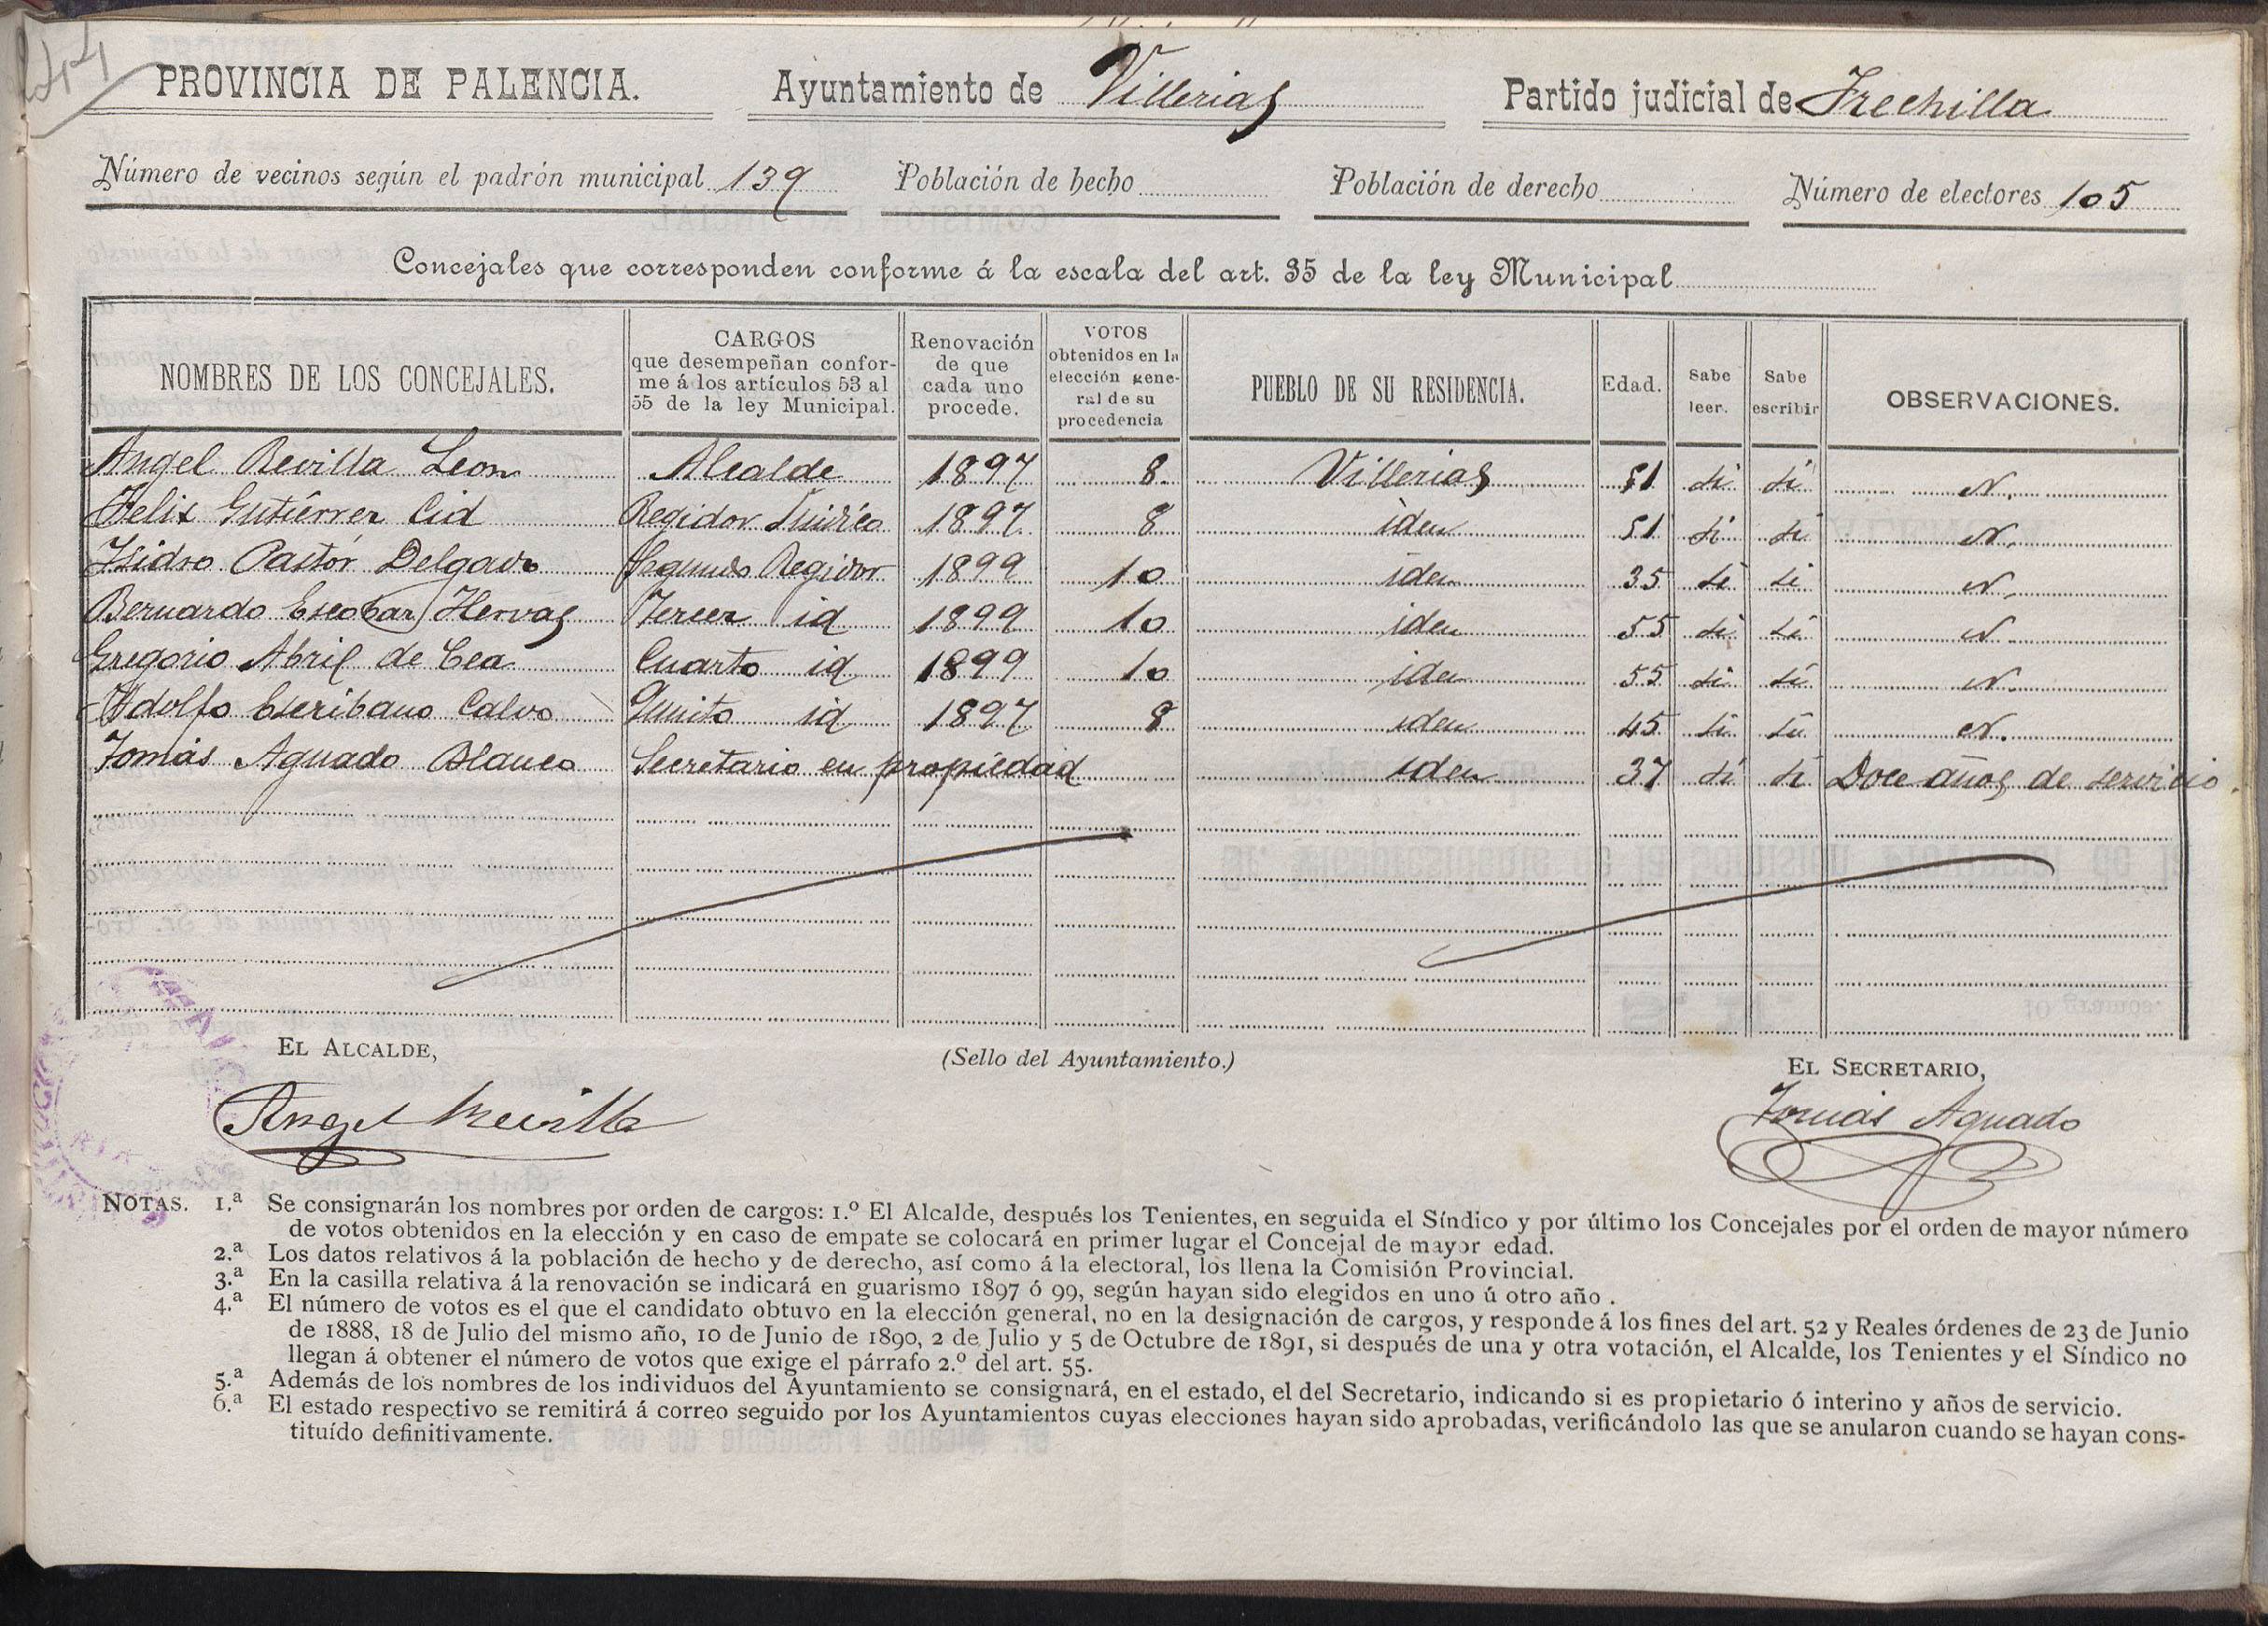 244
PROVINCIA DE PALENCIA. Ayuntamiento de Villerias Partido judicial de Frechilla
Número de vecinos según el padrón municipal 139 Población de hecho Población de derecho Número de electores 105
Concejales que corresponden conforme á la escala del art. 35 de la ley Municipal
NOMBRES DE LOS CONCEJALES. CARGOS que desempeñan conforme á los artículos 53 al 55 de la ley Municipal. Renovación de que cada uno procede. VOTOS obtenidos en la elección general de su procedencia PUEBLO DE SU RESIDENCIA. Edad. Sabe leer. Sabe escribir OBSERVACIONES.
Angel Revilla Leon Alcalde 1897 8 Villerias 51 si si N.
Felix Gutiérrez Cid Regidor Sindico 1897 8 idem 51 si si N.
Isidro Pastór Delgado Segundo Regidor 1899 10 idem 35 si si N.
Bernardo Escobar Hervas Tercer id 1899 10 idem 55 si si N.
Gregorio Abril de Cea Cuarto id 1899 10 idem 55 si si N.
Adolfo Escribano Calvo Quinto id 1897 8 idem 45 si si N.
Tomás Aguado Blanco Secretario en propiedad idem 37 si si Doce años de servicio.
EL ALCALDE, (Sello del Ayuntamiento.) EL SECRETARIO,
Angel Revilla Tomás Aguado
NOTAS. 1.ª Se consignarán los nombres por orden de cargos: 1.º El Alcalde, después los Tenientes, en seguida el Síndico y por último los Concejales por el orden de mayor número
de votos obtenidos en la elección y en caso de empate se colocará en primer lugar el Concejal de mayor edad.
2.ª Los datos relativos á la población de hecho y de derecho, así como á la electoral, los llena la Comisión Provincial.
3.ª En la casilla relativa á la renovación se indicará en guarismo 1897 ó 99, según hayan sido elegidos en uno ú otro año .
4.ª El número de votos es el que el candidato obtuvo en la elección general, no en la designación de cargos, y responde á los fines del art. 52 y Reales órdenes de 23 de Junio
de 1888, 18 de Julio del mismo año, 10 de Junio de 1890, 2 de Julio y 5 de Octubre de 1891, si después de una y otra votación, el Alcalde, los Tenientes y el Síndico no
llegan á obtener el número de votos que exige el párrafo 2.º del art. 55.
5.ª Además de los nombres de los individuos del Ayuntamiento se consignará, en el estado, el del Secretario, indicando si es propietario ó interino y años de servicio.
6.ª El estado respectivo se remitirá á correo seguido por los Ayuntamientos cuyas elecciones hayan sido aprobadas, verificándolo las que se anularon cuando se hayan cons-
tituído definitivamente.